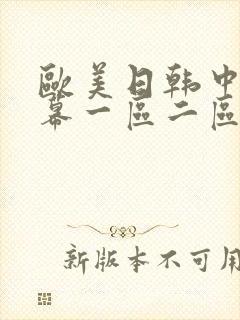 歐美日韩中
幕一區二區
新版本不可用